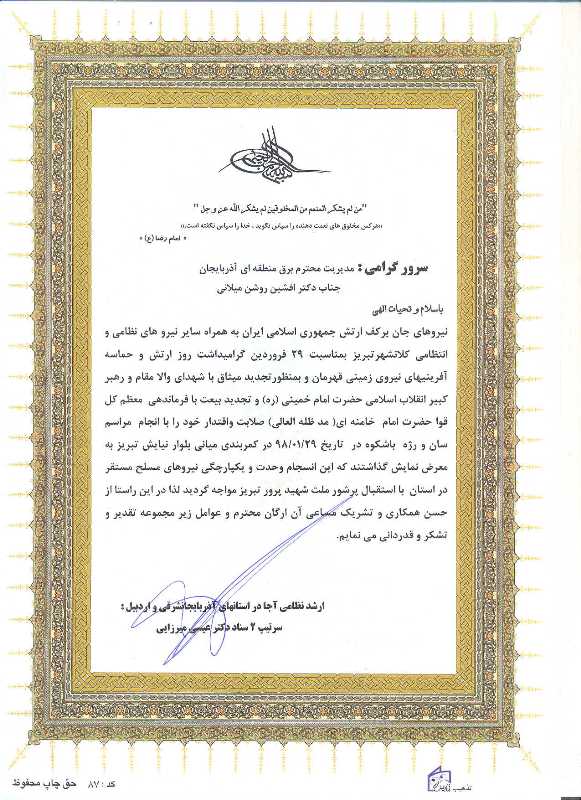 "من لم یشکر المنعم من المخلوقین لم یشکر الله عز و جل"
«هرکس مخلوق های نعمت دهنده را سپاس نگوید ، خدا را سپاس نگفته است.»
« امام رضا (ع) »
سرور گرامی : مدیریت محترم برق منطقه ای آذربایجان
جناب دکتر افشین روشن میلانی
باسلام و تحیات الهی
نیروهای جان برکف ارتش جمهوری اسلامی ایران به همراه سایر نیرو های نظامی و
انتظامی کلانشهرتبریز بمناسبت ۲۹ فروردین گرامیداشت روز ارتش و حماسه
آفرینیهای نیروی زمینی قهرمان و بمنظورتجدید میثاق با شهدای والا مقام و رهبر
کبیر انقلاب اسلامی حضرت امام خمینی (ره) و تجدید بیعت با فرماندهی معظم کل
قوا حضرت امام خامنه ای( مد ظله العالی) صلابت واقتدار خود را با انجام مراسم
سان و رژه باشکوه در تاریخ ۹۸/۰۱/۲۹ در کمربندی میانی بلوار نیایش تبریز به
معرض نمایش گذاشتند که این انسجام وحدت و یکپارچگی نیروهای مسلح مستقر
در استان با استقبال پرشور ملت شهید پرور تبریز مواجه گردید لذا در این راستا از
حسن همکاری و تشریک مساعی آن ارگان محترم و عوامل زیر مجموعه تقدیر و
تشکر و قدردانی می نمایم.
ارشد نظامی آجا در استانهای آذربایجانشرقی و اردبیل :
سرتیپ ۲ ستاد دکتر عیسی میرزایی
کد : ۸۷ حق چاپ محفوظ
تذهیب